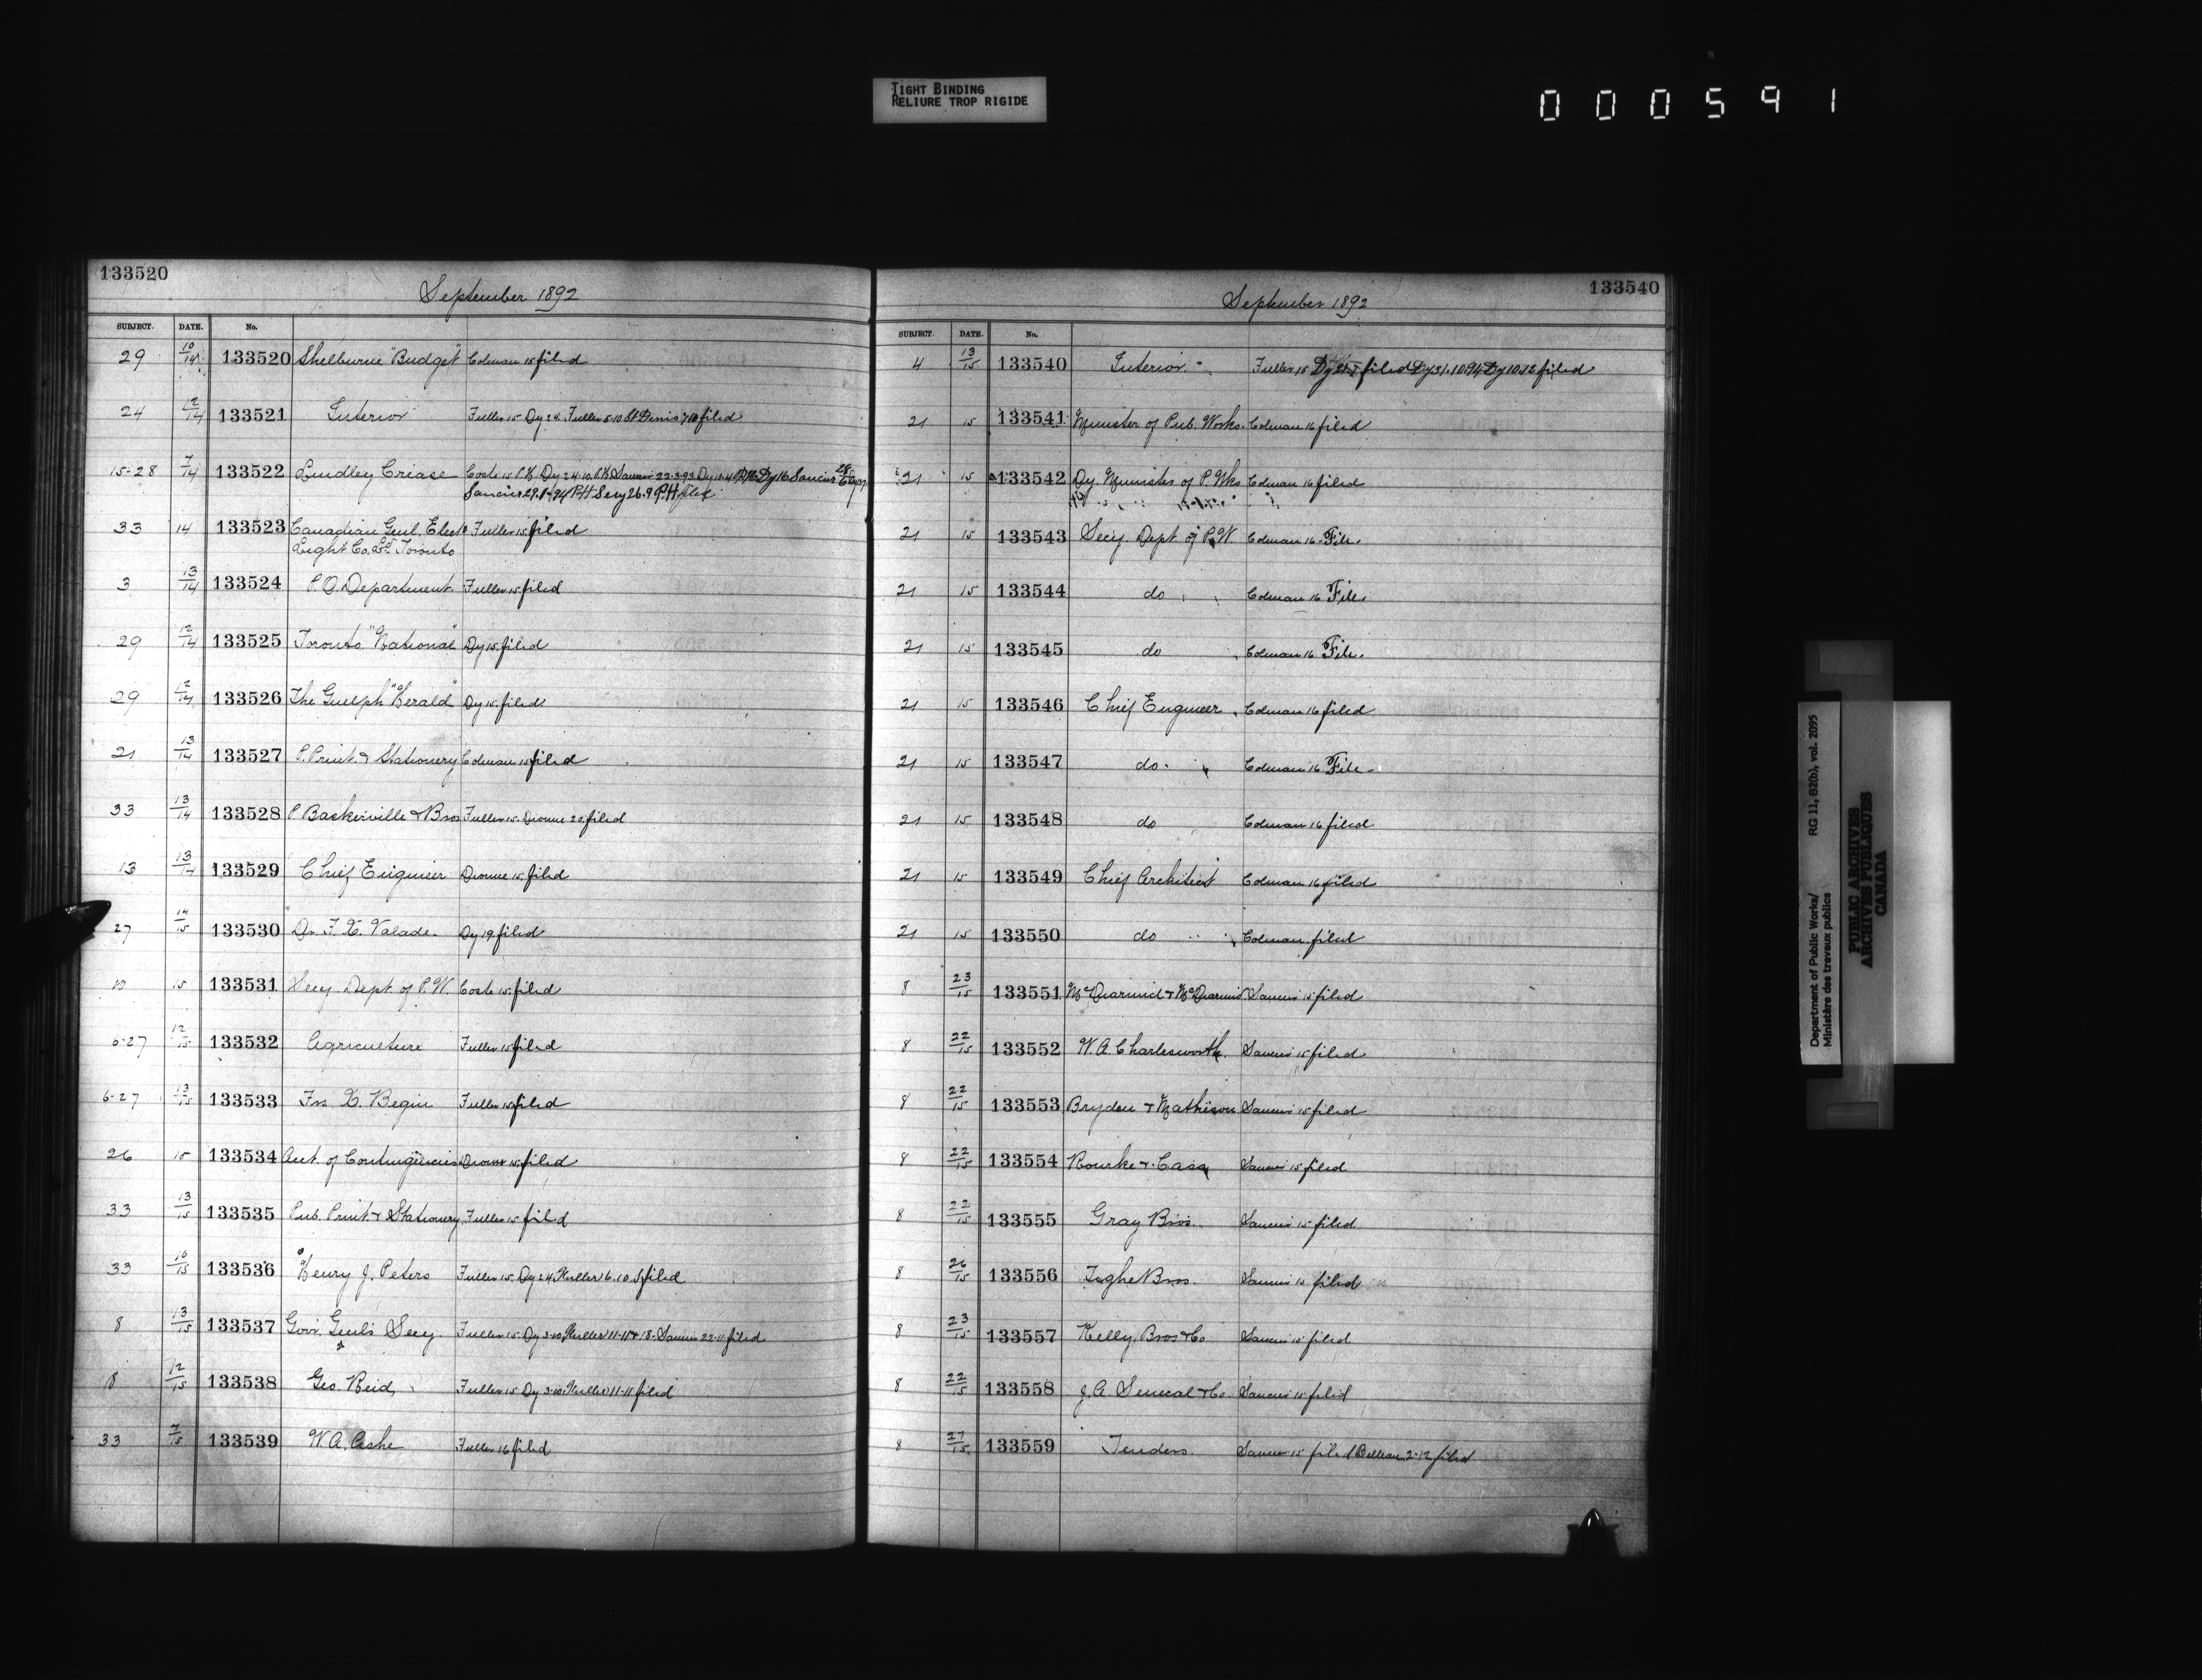 TIGHT BINDING
RELIURE TROP RIGIDE
000591
133520
September 1892
SUBJECT. DATE. No.
29 10/14 133520 Shelburne "Budget" Colman 15 filed
24 12/14 133521 Interior Fuller 15 Dy 24 Fuller 5-10 St Denis 7/10 filed
15-28 7/14 133522 Lindley Crease Coste 15 P.H. Dy 24-10 P.H. Saucier 22-3-93 Dy Dy 16 Saucier
Saucier 29-1-94 P.H. Secy 26-9 P.H. filed
33 14 133523 Canadian Genl. Elect Fuller 15 filed
Light Co. Ld. Toronto
3 13/14 133524 P.O. Department Fuller 15 filed
29 12/14 133525 Toronto "National" Dy 15 filed
29 12/14 133526 The Guelph "Herald" Dy 15 filed
21 13/14 133527 P. Print. & Stationery Colman 15 filed
33 13/14 133528 P. Baskerville & Bros Fuller 15 Dionne 22 filed
13 13/14 133529 Chief Engineer Dionne 15 filed
27 14/15 133530 Dr. F. X. Valade. Dy 19 filed
10 15 133531 Secy. Dept of P.W. Coste 15 filed
6-27 12/15 133532 Agriculture Fuller 15 filed
6-27 13/15 133533 Frs X. Begin Fuller 15 filed
26 15 133534 Acct. of Contingencies Dionne 15 filed
33 13/15 133535 Pub. Print & Stationery Fuller 15 filed
33 10/15 133536 Henry J. Peters Fuller 15 Dy 24 Fuller 6.10 filed
8 13/15 133537 Govr. Genl's Secy. Fuller 15 Dy 3-10 Fuller 11-11 & 18- Saucier 22-11 filed
8 12/15 133538 Geo. Reid, Fuller 15 Dy 3-10 Fuller 11-11 filed
33 7/15 133539 W.A. Ashe Fuller 16 filed
133540
September 1892
SUBJECT. DATE. No.
4 13/15 133540 Interior Fuller 15 Dy filed Dy 31.10.94 Dy 10.12 filed
21 15 133541 Minister of Pub. Works. Colman 16 filed
21 15 133542 Dy Minister of P. Wks Colman 16 filed
21 15 133543 Secy. Dept of P.W. Colman 16 File.
21 15 133544 do Colman 16 File.
21 15 133545 do Colman 16 File.
21 15 133546 Chief Engineer Colman 16 filed
21 15 133547 do Colman 16 File
21 15 133548 do Colman 16 filed
21 15 133549 Chief Architect Colman 16 filed
21 15 133550 do Colman filed
8 23/15 133551 McDiarmid & McDiarmid Saucier 15 filed
8 22/15 133552 W.A. Charlesworth. Saucier 15 filed
8 22/15 133553 Bryden & Mathison Saucier 15 filed
8 22/15 133554 Rourke & Cass Saucier 15 filed
8 22/15 133555 Gray Bros. Saucier 15 filed
8 26/15 133556 Tighe Bros. Saucier 15 filed
8 23/15 133557 Kelly, Bros & Co Saucier 15 filed
8 22/15 133558 J.A. Senecal & Co. Saucier 15 filed
8 27/15 133559 Tenders Saucier 15 filed Belleau 2-12 filed
Department of Public Works/ RG 11, B2(b), vol. 2095
Ministère des travaux publics
PUBLIC ARCHIVES
ARCHIVES PUBLIQUES
CANADA